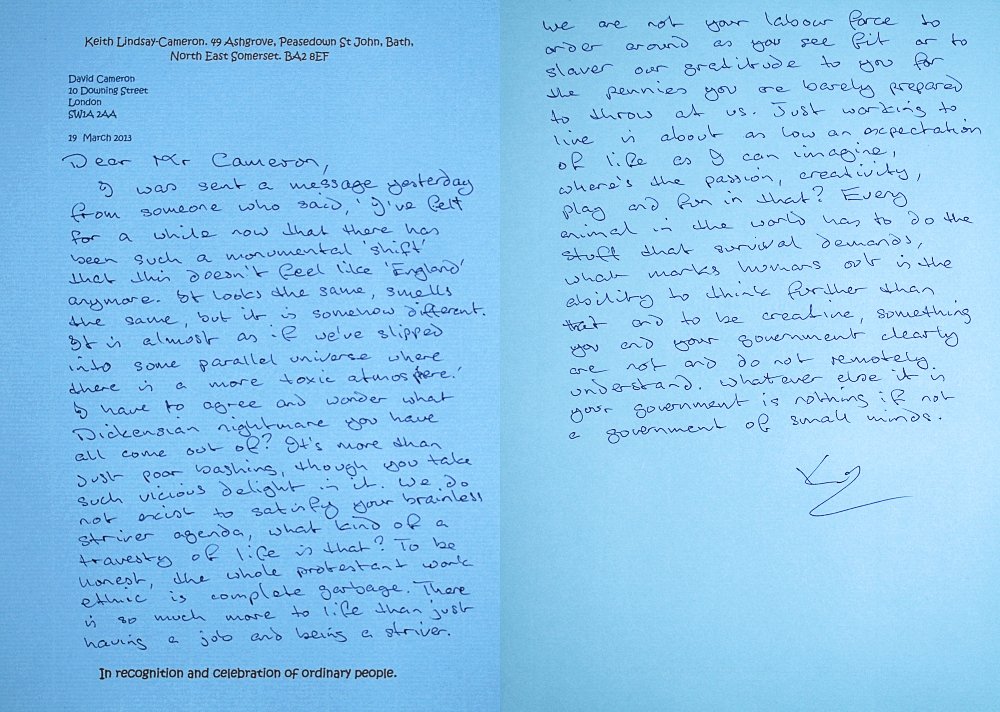 Keith Lindsay-Cameron. 49 Ashgrove, Peasedown St John, Bath,
North East Somerset. BA2 8EF
David Cameron
10 Downing Street
London
SW1A 2AA
19 March 2013
Dear Mr Cameron,
I was sent a message yesterday
from someone who said, 'I've felt
for a while now that there has
been such a monumental 'shift'
that this doesn't feel like 'England'
anymore. It looks the same, smells
the same, but it is somehow different.
It is almost as if we've slipped
into some parallel universe where
there is a more toxic atmosphere.'
I have to agree and wonder what
Dickensian nightmare you have
all come out of? It's more than
just poor bashing, though you take
such vicious delight in it. We do
not exist to satisfy your brainless
striver agenda, what kind of a
travesty of life is that? To be
honest, the whole protestant work
ethic is complete garbage. There
is so much more to life than just
having a job and being a striver.
In recognition and celebration of ordinary people.
We are not your labour force to
order around as you see fit or to
slaver our gratitude to you for
the pennies you are barely prepared
to throw at us. Just working to
live is about as low an expectation
of life as I can imagine,
where's the passion, creativity,
play and fun in that? Every
animal in the world has to do the
stuff that survival demands,
what marks humans out is the
ability to think further than
that and to be creative, something
you and your government clearly
are not and do not remotely
understand. Whatever else it is
your government is nothing if not
a government of small minds.